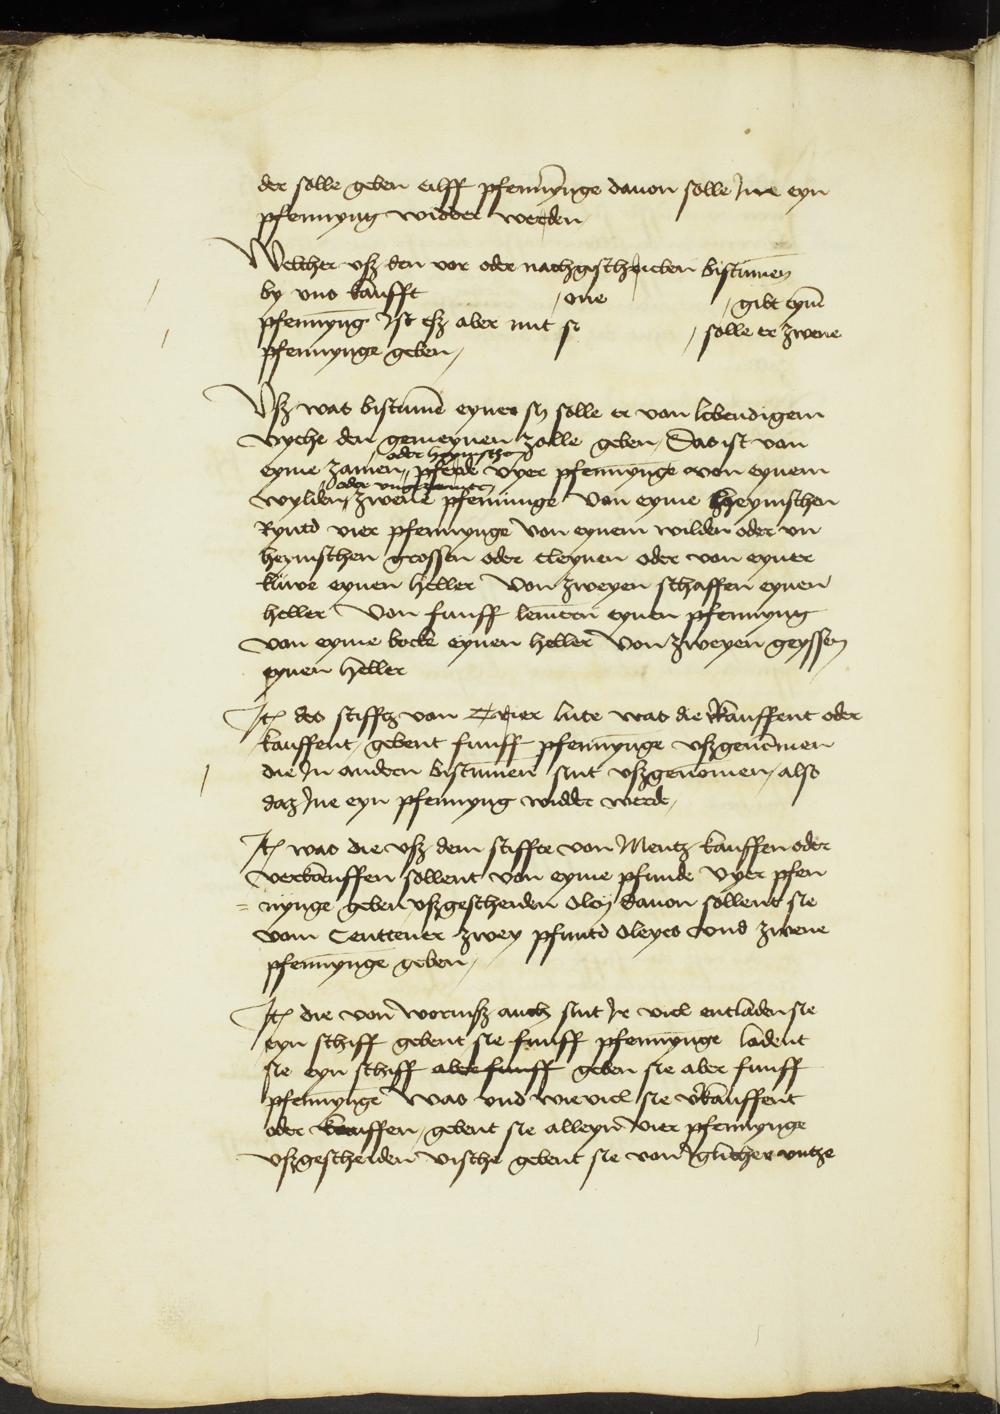 der solle geben eilff pfennynge dauon solle Jme eyn
pfennyng widder werden
Welcher vsz den vor oder nachgeschrieben bistumen
by vns kaufft / one / gibt eynen
pfennyng Ist esz aber mit si / solle er zwene
pfennynge geben /
Vsz was bistume eyner sy solle er von lebendigem
vyche den gemeynen zolle geben / Das ist von
oder heymschen
eyme zamen pferde vyer pfennynge von eynem
oder vngezemet
wylden zwene pfennunge von eyme heymschen
Ryntd vier pfennynge von eynem wilden oder vn
heymschen grossen oder cleynen oder von eyner
kuwe eynen heller Von zweyen schaffen eynen
heller Von funff lemern eynen pfennyng
von eyme bocke eynen heller Von zweyen geyssen
eynen heller
Jt des stiffts von Trier lute was die vkauffent oder
kauffent / gebent funff pfennynge vszgenomen
die Jn andern bistumen sint vszgenomen / also
daz Jne eyn pfennyng widder werde /
Jt was die vsz dem stiffte von Mentz kauffen oder
verkauffen sollent von eyme pfunde vyer pfen
= nynge geben vszgescheiden Oley dauon sollent sie
vom Centtener zwey pfuntd Oleyes vnd zwene
pfennynge geben /
Jt die von wormsz auch sint Jr viel entladen sie
eyn schiff gebent sie funff pfennynge ladent
sie eyn schiff aber funff geben sie aber funff
pfennynge Was vnd wieviel sie vkauffent
oder kauffen / gebent sie alleyn vier pfennynge
vszgescheiden vische gebent sie von Jglicher vntze